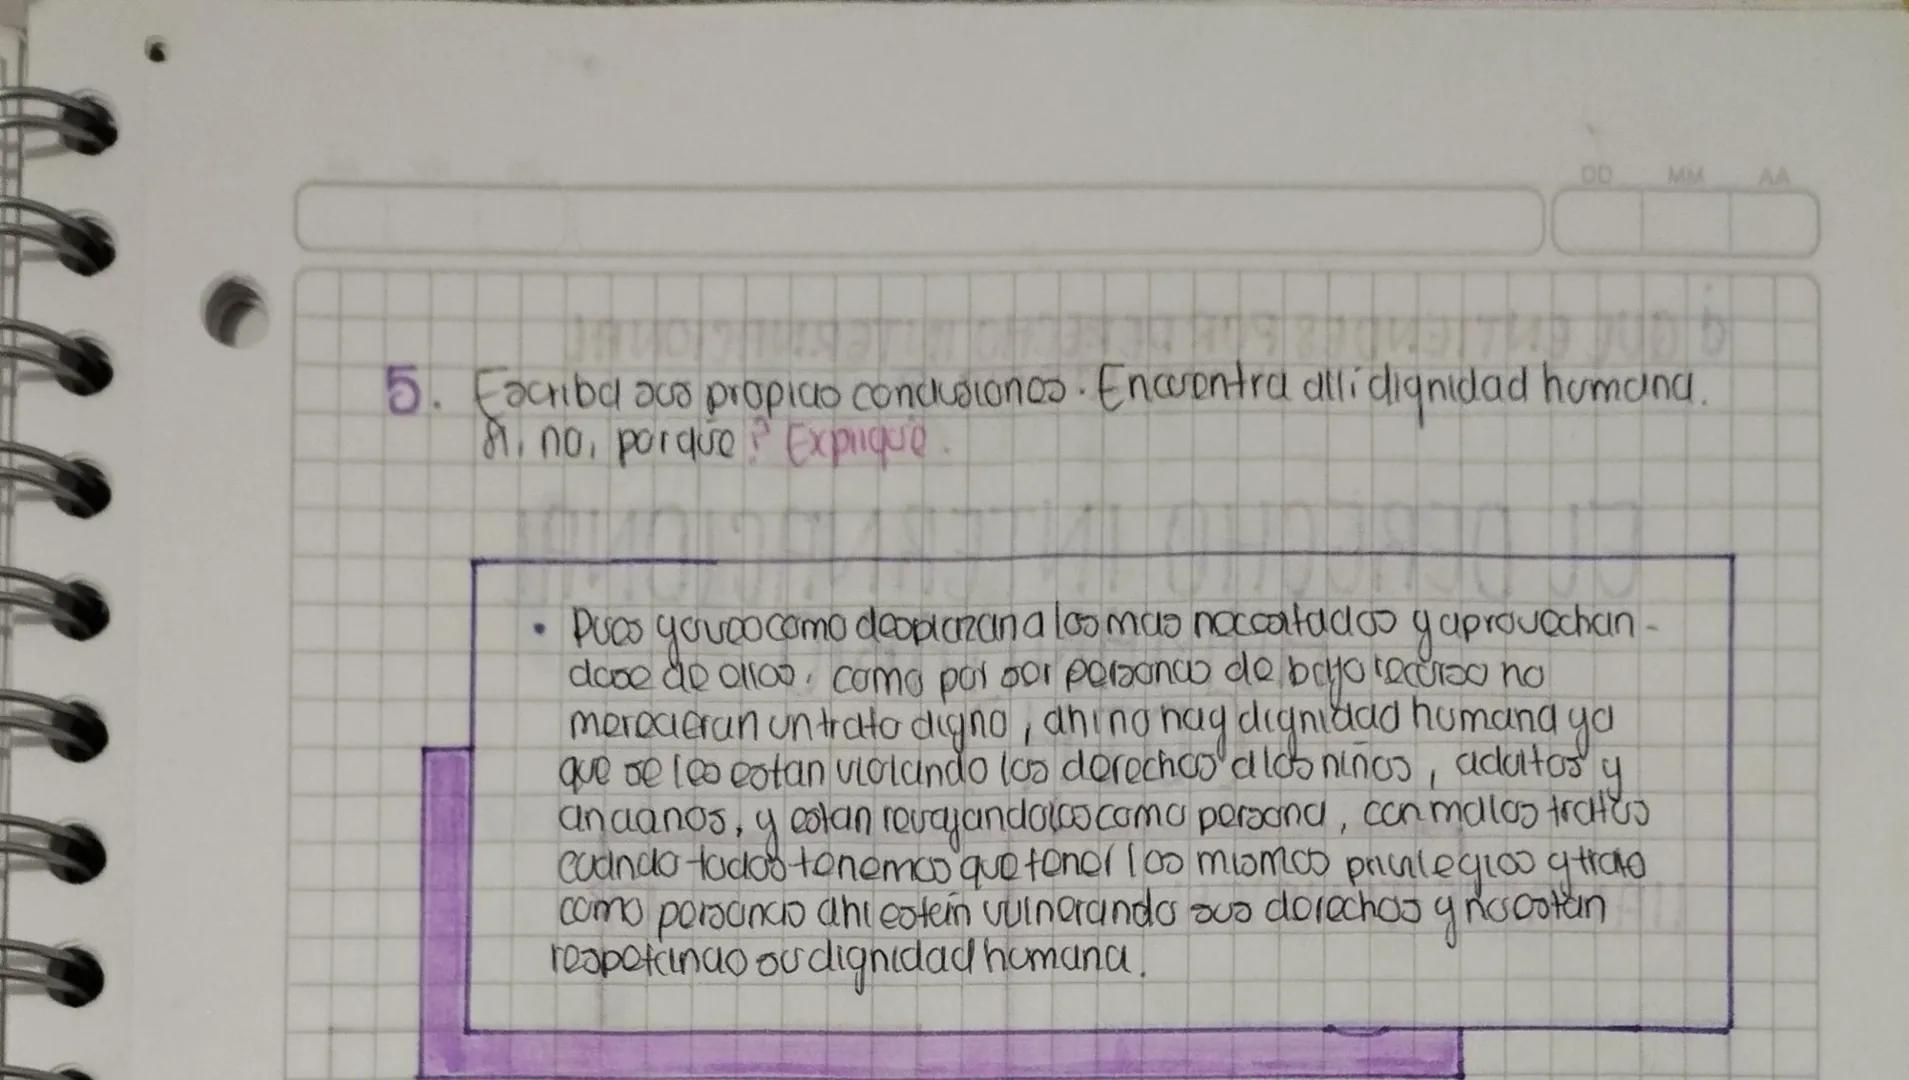 DD MM AA
5. Escriba sus propias conclusiones. Encuentra alli dignidad humana.
Si, no, porque? Explique.
• Pues yo veo como desplazan a los mas necesitados y aprovechan-
dose de ellos, como por ser personas de bajo recurso no
merecieran un trato digno, ahi no hay dignidad humana ya
que se les estan violando los derechos a los niños, adultos y
ancianos, y estan revajandolos como persona, con malos tratos
cuando todos tenemos que tener los mismos privilegios y trato
como personas ahi esten vulnerando sus derechos y no estan
respetando su dignidad humana.